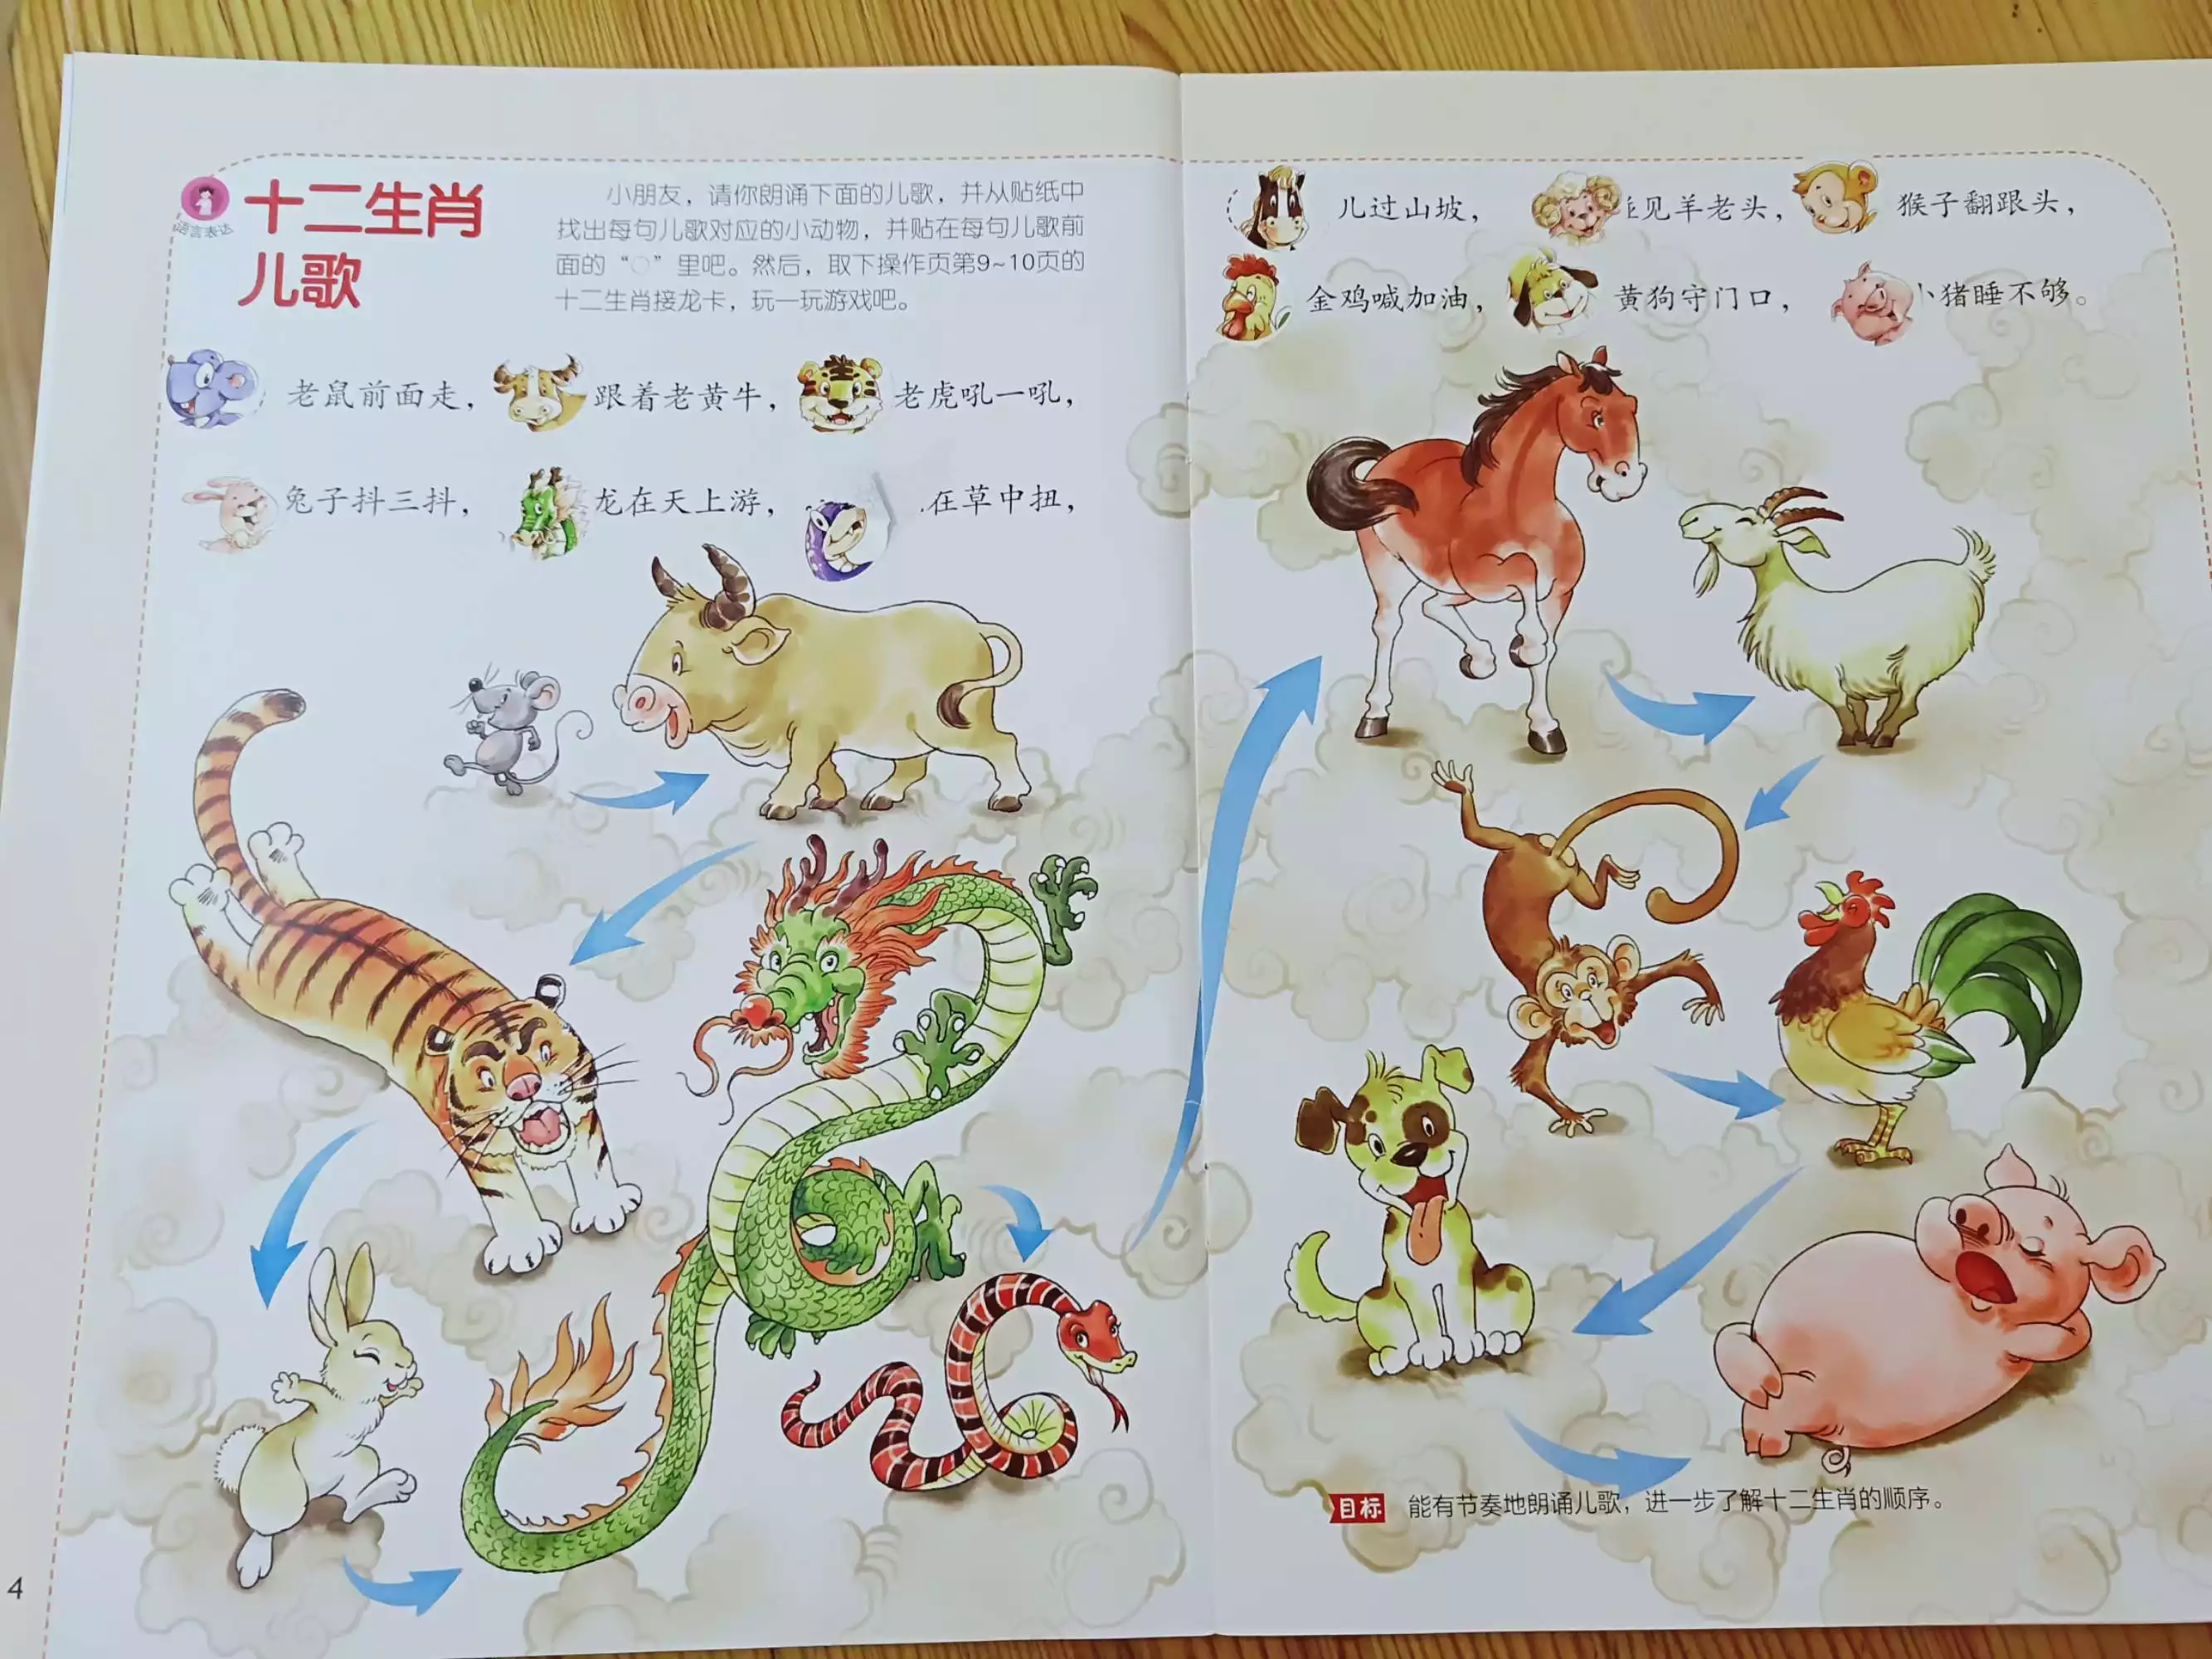 语言表达
十二生肖
儿歌
小朋友，请你朗诵下面的儿歌，并从贴纸中
找出每句儿歌对应的小动物，并贴在每句儿歌前
面的“○”里吧。然后，取下操作页第9~10页的
十二生肖接龙卡，玩一玩游戏吧。
老鼠前面走， 跟着老黄牛， 老虎吼一吼，
兔子抖三抖， 龙在天上游， 在草中扭，
4
儿过山坡， 见羊老头， 猴子翻跟头，
金鸡喊加油， 黄狗守门口， 小猪睡不够。
目标 能有节奏地朗诵儿歌，进一步了解十二生肖的顺序。